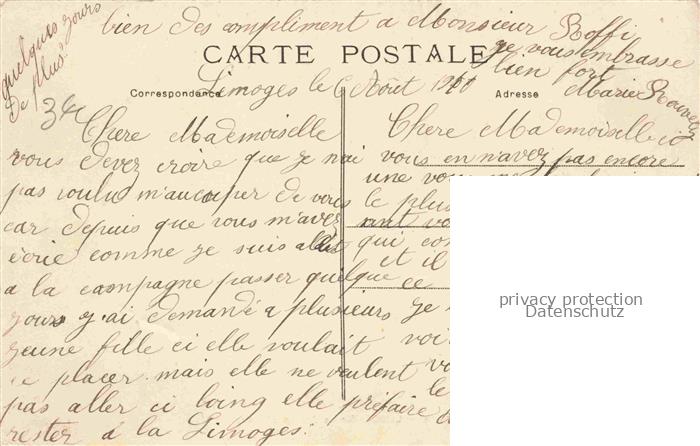 quelques jours
De plus
bien des compliment a Monsieur Roffi
je vous embrasse
bien fort
CARTE POSTALE
Limoges le 6 Août 1910
Marie
Correspondance
Adresse
34
Chere Mademoiselle
vous devez croire que je n'ai
pas voulu m'aucuper de vous
car depuis que vous m'avez
écrie comme je suis allés
a la campagne passer quelque
jours j'ai demandé a plusieurs
jeune fille ci elle voulait
ce placer mais elle ne veulent
pas aller ci loing elle préfaire
rester à la Limoges.
Chere Mademoiselle ci
vous en n'avez pas encore
une vou
le plus
vo
qui con
et il
ce
je
voi
vo
le
privacy protection
Datenschutz